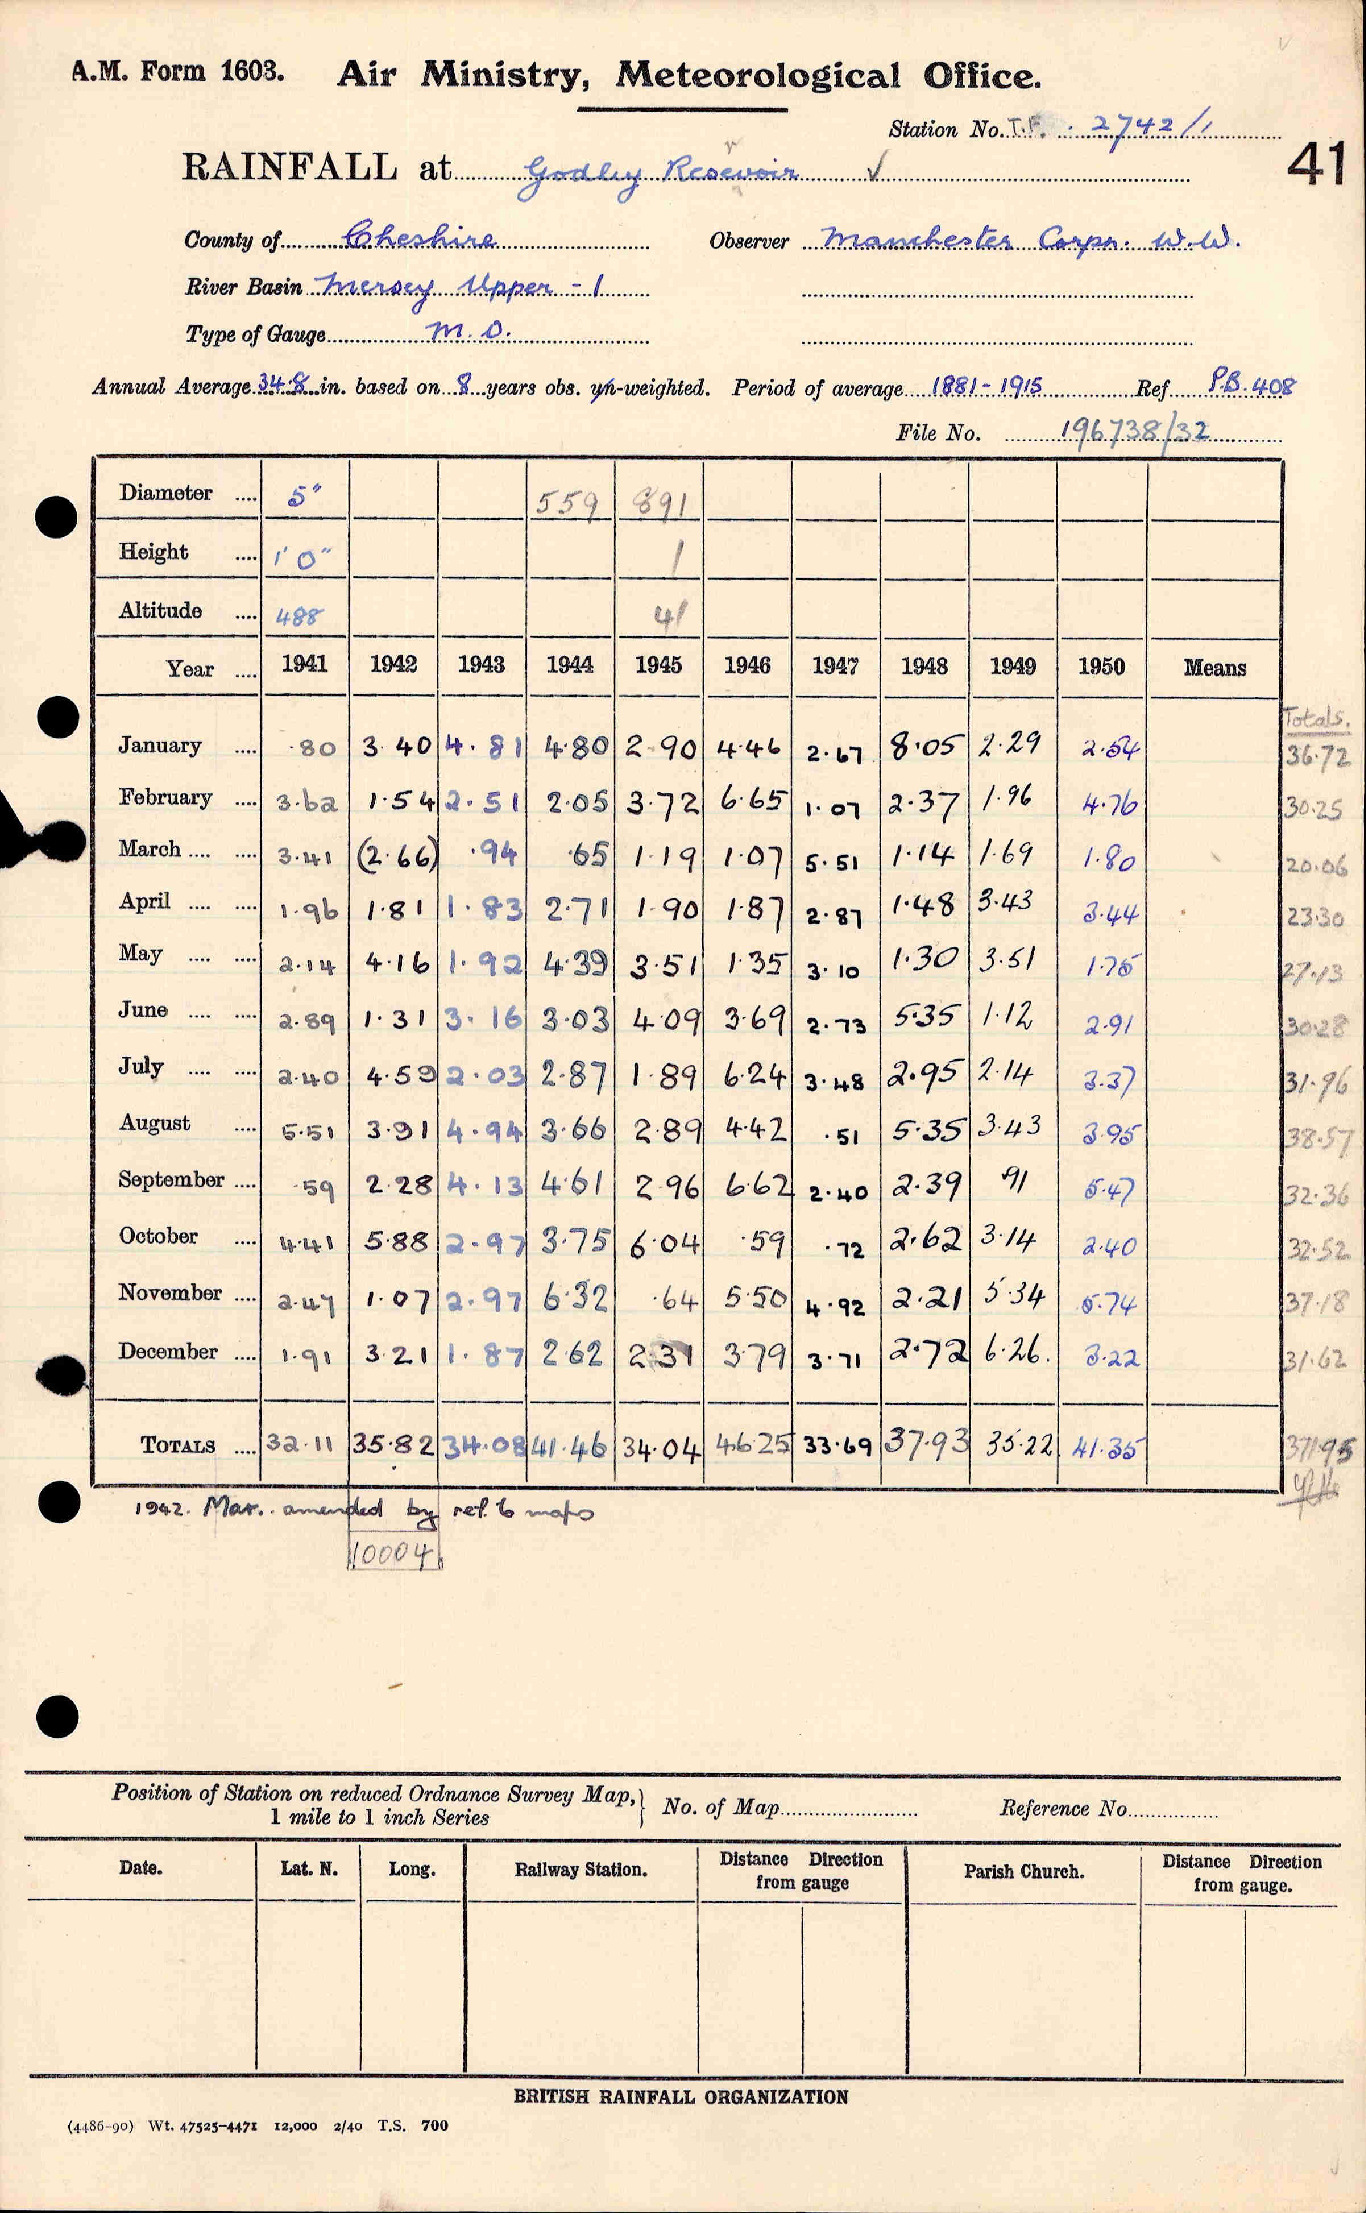 A.M. Form 1603. Air Ministry, Meteorological Office.
Station No. T.F. 2742/1
41
RAINFALL at Godley Resevoir ✓
r
County of Cheshire Observer Manchester Corpn. W.W.
River Basin Mersey Upper - 1
Type of Gauge M.O.
Annual Average 34.8 in. based on 8 years obs. un-weighted. Period of average 1881-1915 Ref P.B. 408
File No. 196738/32
Diameter .... 5" 559 891
Height .... 1' 0" 1
Altitude .... 488 41
Year .... 1941 1942 1943 1944 1945 1946 1947 1948 1949 1950 Means
Totals.
January .... .80 3.40 4.81 4.80 2.90 4.46 2.67 8.05 2.29 2.54 36.72
February .... 3.62 1.54 2.51 2.05 3.72 6.65 1.07 2.37 1.96 4.76 30.25
March .... .... 3.41 (2.66) .94 .65 1.19 1.07 5.51 1.14 1.69 1.80 20.06
April .... .... 1.96 1.81 1.83 2.71 1.90 1.87 2.87 1.48 3.43 3.44 23.30
May .... .... 2.14 4.16 1.92 4.39 3.51 1.35 3.10 1.30 3.51 1.75 27.13
June .... .... 2.89 1.31 3.16 3.03 4.09 3.69 2.73 5.35 1.12 2.91 30.28
July .... .... 2.40 4.59 2.03 2.87 1.89 6.24 3.48 2.95 2.14 3.37 31.96
August .... 5.51 3.91 4.94 3.66 2.89 4.42 .51 5.35 3.43 3.95 38.57
September .... .59 2.28 4.13 4.61 2.96 6.62 2.40 2.39 .91 5.47 32.36
October .... 4.41 5.88 2.97 3.75 6.04 .59 .72 2.62 3.14 2.40 32.52
November .... 2.47 1.07 2.97 6.32 .64 5.50 4.92 2.21 5.34 5.74 37.18
December .... 1.91 3.21 1.87 2.62 2.31 3.79 3.71 2.72 6.26. 3.22 31.62
TOTALS .... 32.11 35.82 34.08 41.46 34.04 46.25 33.69 37.93 35.22 41.35 371.95
1942. Mar. amended by ref. to maps
10004
Position of Station on reduced Ordnance Survey Map, 1 mile to 1 inch Series } No. of Map Reference No.
Date. Lat. N. Long. Railway Station. Distance Direction from gauge Parish Church. Distance Direction from gauge.
BRITISH RAINFALL ORGANIZATION
(4486-90) Wt. 47525-4471 12,000 2/40 T.S. 700